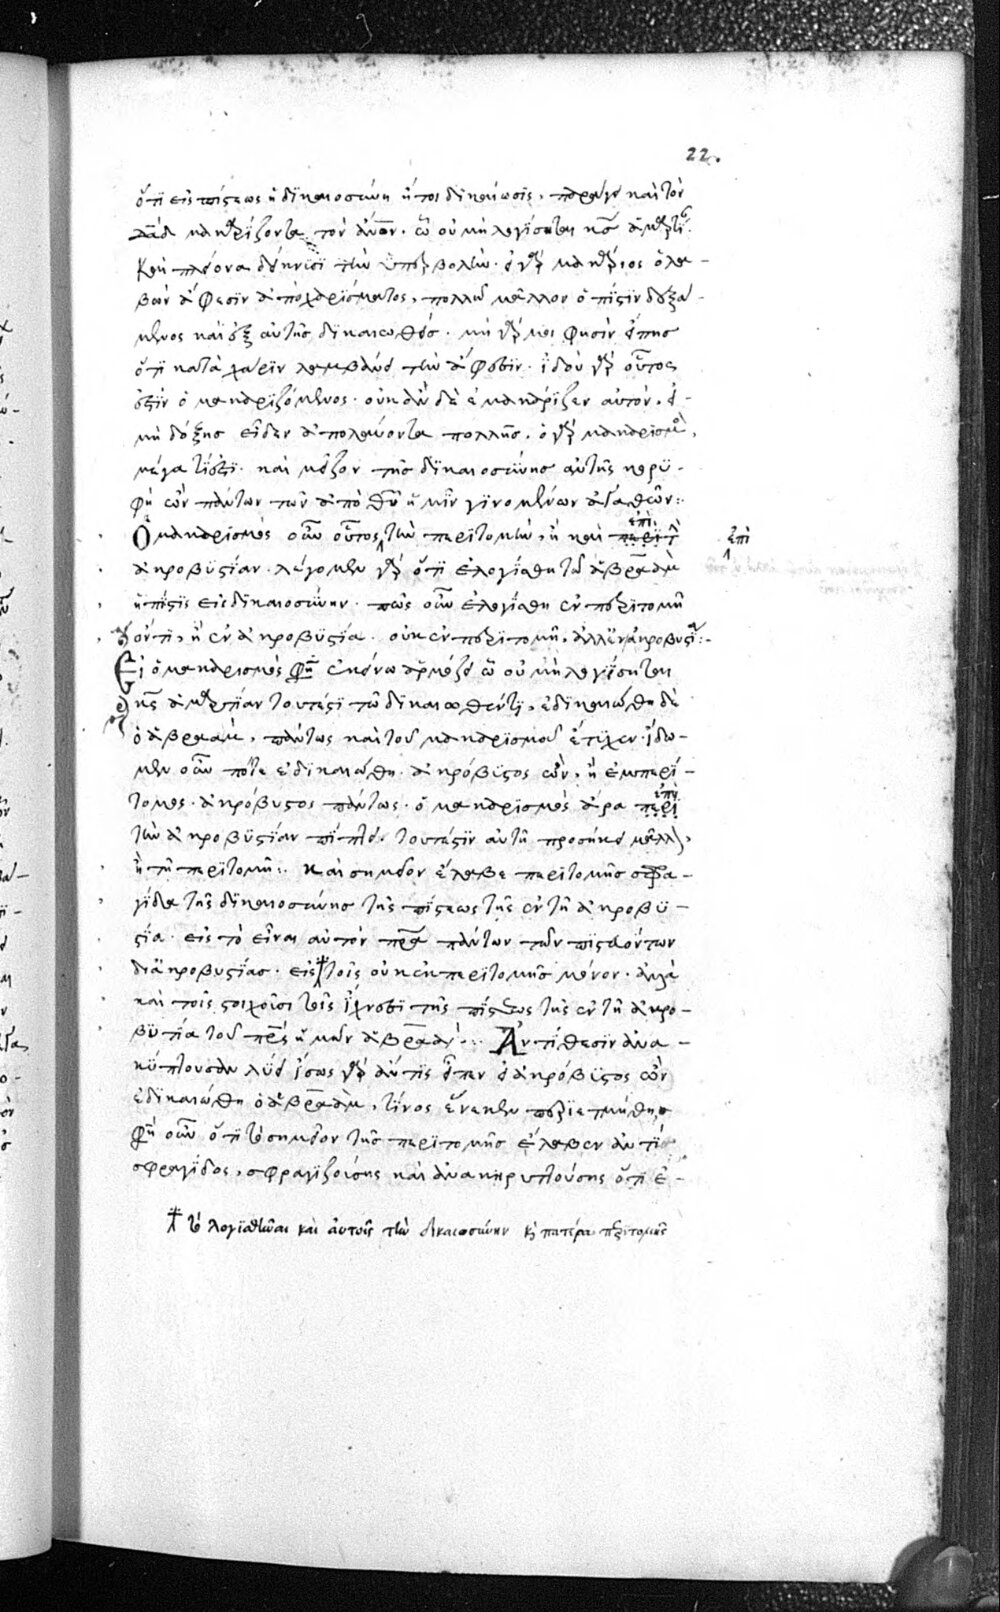 22.
ὅτι ἐκ πίστεως ἡ δικαιοσύνη ἤτοι δικαίωσις, παράγει καὶ τὸν
δαδ μακαρίζοντα τὸν ἄνον. ᾧ οὐ μὴ λογίσηται κς ἁμαρτί.
καὶ πλέονα δείκνυσι τὴν ὑπερβολήν. εἰ γὰρ μακάριος ὁ λα-
βὼν ἄφεσιν ἀπὸ χαρίσματος, πολλῷ μᾶλλον ὁ πίστιν δεξά-
μενος καὶ ἐξ αὐτῆς δικαιωθείς. μὴ γάρ μοι φησὶν εἴπης
ὅτι κατὰ χάριν λαμβάνει τὴν ἄφεσιν. ἰδοὺ γὰρ οὗτος
ἐστὶν ὁ μακαριζόμενος. οὐκ ἂν δὲ ἐμακάριζεν αὐτὸν, εἰ
μὴ δόξης εἶδεν ἀπολαύοντα πολλῆς. ὁ γὰρ μακαρισμὸ,
μέγα τί ἐστι. καὶ μεῖζον τῆς δικαιοσύνης αὐτῆς κορυ-
φὴ ὢν πάντων τῶν ἀπὸ θυ ἡμῖν γινομένων ἀγαθῶν:
Ὁ μακαρισμὸς οὖν οὗτος, τὴν περιτομὴν, ἢ καὶ περὶ τ
ἐπὶ
ἐπὶ
ἀκροβυστίαν. λέγομεν γὰρ ὅτι ἐλογίσθη τῷ ἀβραὰμ
ἡ πίστις εἰς δικαιοσύνην. πῶς οὖν ἐλογίσθη ἐν περιτομῇ
ὄντι, ἢ ἐν ἀκροβυστία. οὐκ ἐν περιτομῇ, ἀλλ' ἐν ἀκροβυστί:-
Εἰ ὁ μακαρισμὸς φη ἐκείνω ἁρμόζει ᾧ οὐ μὴ λογίσηται
κς ἁμαρτίαν τουτέστι τῷ δικαιωθέντι, ἐδικαιώθη δὲ
ὁ ἀβραὰμ, πάντως καὶ τοῦ μακαρισμοῦ ἔτυχεν. ἴδω-
μεν οὖν πότε ἐδικαιώθη. ἀκρόβυστος ὢν, ἢ ἐμπερί-
τομος. ἀκρόβυστος πάντως. ὁ μακαρισμὸς ἄρα περὶ
ἐπὶ
τὴν ἀκροβυστίαν πίπτει. τουτέστιν αὐτῇ προσήκει μᾶλλ,
ἢ τῇ περιτομῇ: Καὶ σημεῖον ἔλαβε περιτομῆς σφρα-
γίδα τῆς δικαιοσύνης τῆς πίστεως τῆς ἐν τῇ ἀκροβυ-
στία. εἰς τὸ εἶναι αὐτὸν πρα πάντων τῶν πιστευόντων
δι' ἀκροβυστίας. εἰς τοῖς οὐκ ἐκ περιτομῆς μόνον. ἀλλὰ
καὶ τοῖς στοιχοῦσι τοῖς ἴχνεσι τῆς πίστεως τῆς ἐν τῇ ἀκρο-
βυστία τοῦ πρς ἡμῶν ἀβραάμ: Ἀντίθεσιν ἀνα-
κύπτουσαν λύει ἴσως γὰρ ἄν τις εἶπεν εἰ ἀκρόβυστος ὢν
ἐδικαιώθη ὁ ἀβραὰμ, τίνος ἕνεκεν περιετμήθη,
φη οὖν ὅτι τὸ σημεῖον τῆς περιτομῆς ἔλαβεν ἀντὶ
σφραγίδος, σφραγιζούσης καὶ ἀνακηρυττούσης ὅτι ἐ-
τὸ λογισθῆναι καὶ αὐτοῖς τὴν δικαιοσύνην κ πατέρα περιτομῆς